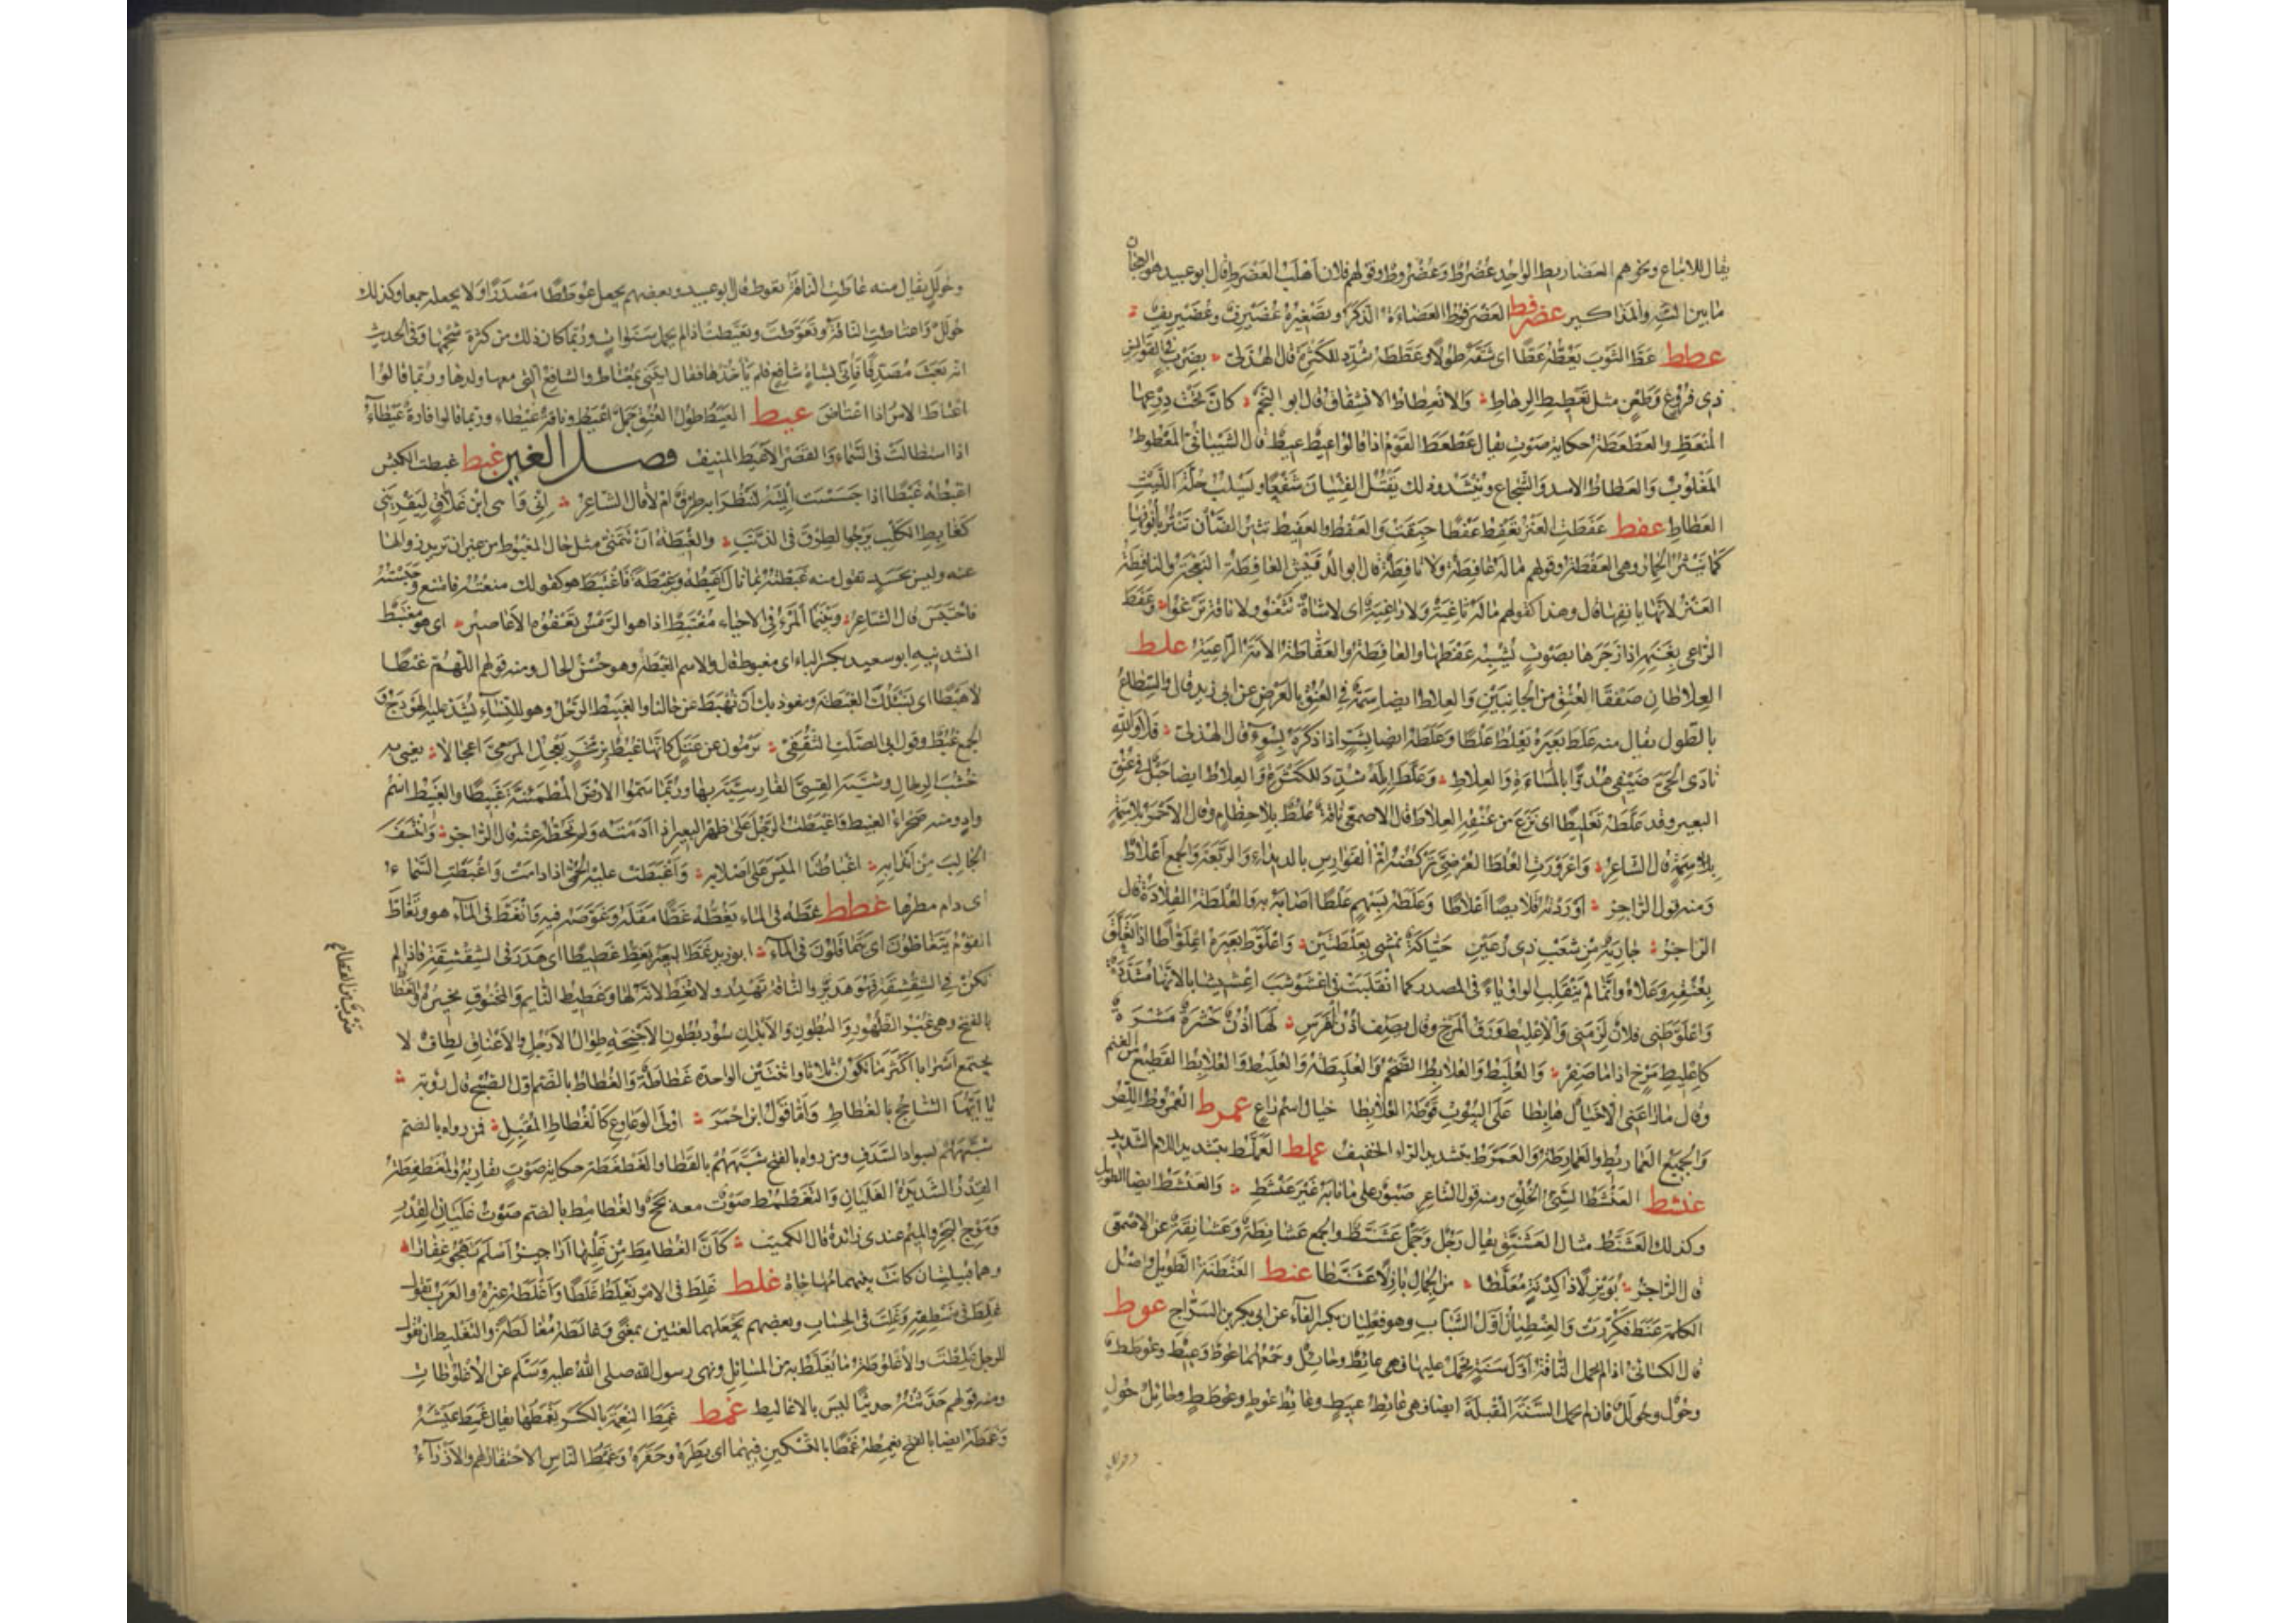 يقال للاتباع ونحوهم العضاريط الواحد عُضْرُط وعُضْرُوط وقولهم فلان أهلب العضرط قال ابو عبيد هو العجان
ما بين السُّبَّة والمذاكير عضرفط العضرفوط العضاءة الذكر وتصغيره عُضَيْرِفٌ وعُضَيْرِيفٌ
عطط عَطَّ الثوبَ يَعُطُّه عَطًّا اى شقه طولا وعَطَّطَه شدد للكثرة قال الهذلى بضرب فى القوانس
ذى فروغ وطعن مثل تعطيط الرهاط والانعطاط الانشقاق قال ابو النجم كان تحت درعها
المنعط والعطعطة حكاية صوت يقال عطعط القوم اذا قالوا عيط عيط قال الشيبانى المعطوط
المغلوب والعطاط الاسد والشجاع وينشدون لك يقتل الفتيان شفعا ويسلب حلة الليث
العطاط عفط عفطت العنز تعفط عفطا حبقت والعفط والعفيط نثير الضأن تنثر بأنوفها
كما ينثر الحمار وهى العفطة وقولهم ما له عافطة ولا نافطة قال ابو الدقيش العافطة النعجة والنافطة
العنز لانها بانفها قال وهذا كقولهم ما له ثاغية ولا راغية اى لا شاة تثغو ولا ناقة ترغو وعفط
الراعى بغنمه اذا زجرها بصوت يشبه عفطها والعافطة والعفاطة الامة الراعية علط
العلاطان صفقا العنق من الجانبين والعلاط ايضا سمة فى العنق بالعرض عن ابى زيد قال والسطاع
بالطول يقال منه علط بعيره يعلط علطا وعلطه ايضا بشر اذا ذكره بسوء قال الهذلى فلا والله
نادى الحى ضيفى هدوا بالمساءة والعلاط وعلط ابله شدد للكثرة والعلاط ايضا حبل فى عنق
البعير وقد علطه تعليطا اى نزع من عنقه العلاط قال الاصمعى ناقة علط بلا خطام وقال الاحمر بلا سمة
بلا سمة قال الشاعر واعرورت العلط العرضى تركضه ام الفوارس بالدئداء والربعة والجمع اعلاط
ومنه قول الراجز اوردته قلائصا اعلاطا وعلطه بسهم علطا اصابه به والعلطة القلادة قال
الراجز جارية من شعب ذى رعين حياكة تمشى بعلطتين واعلوط بعيره اعلواطا اذا تعلق
بعنقه وعلاه وانما لم تنقلب الواو ياء فى المصدر كما انقلبت فى اعشوشب اعشيشابا لانها مشددة
واعلوطنى فلان لزمنى والاعليط ورق المرخ وقال يصف اذن الفرس لها اذن حشرة مشرة
كاعليط مرخ اذا ما صفر والعلبط والعلابط الضخم والعلبطة والعلبط والعلابط القطيع من الغنم
وقال ما راعنى الا خيال هابطا على البيوت قوطه العلابطا خيال اسم راع عمرط العمروط اللص
والجميع العماريط والعمارطة والعمرط بتشديد الراء الخفيف عملط العملط بتشديد اللام الشديد
عنشط العنشط السيئ الخلق ومنه قول الشاعر صبور على ما نابه غير عنشط والعنشط ايضا الطويل
وكذلك العشنط مثال العشنق يقال رجل وجمل عشنط والجمع عشانطة وعشانقة عن الاصمعى
قال الراجز بويزلا ذا كدنة معلطا من الجمال بازلا عشنطا عنط العنطنط الطويل واصل
الكلمة عنط فكررت والعنطيان اول الشباب وهو فعليان بكسر الفاء عن ابى بكر بن السراج عوط
قال الكسائى اذا لم تحمل الناقة اول سنة يحمل عليها فهى عائط وحائل وجمعها عوط وعيط وعوطط
وحول وحولل فان لم تحمل السنة المقبلة ايضا فهى عائط عيط وعائط عوط وعوطط وحائل حول
وحولل يقال منه عاطت الناقة تعوط قال ابو عبيد وبعضهم يجعل عوططا مصدرا ولا يجعله جمعا وكذلك
حولل واعتاطت الناقة وتعوطت وتعيطت اذا لم تحمل سنوات وربما كان ذلك من كثرة شحمها وفى الحديث
انه بعث مصدقا فاتى بشاة شافع فلم يأخذها فقال ائتنى بمعتاط والشافع التى معها ولدها وربما قالوا
اعتاط الامر اذا اعتاص عيط العيط طول العنق جمل اعيط وناقة عيطاء وربما قالوا قارة عيطاء
اذا استطالت فى السماء والقصر الاعيط المنيف فصل الغين غبط غبطت الكبش
اغبطه غبطا اذا جسست اليته لتنظر ابه طرق ام لا قال الشاعر انى واتى ابن غلاق ليقرينى
كغابط الكلب يرجو الطرق فى الذنب والغبطة ان تتمنى مثل حال المغبوط من غير ان تريد زوالها
عنه وليس بحسد تقول منه غبطته بما نال اغبطه غبطا وغبطة فاغتبط هو كقولك منعته فامتنع وحبسته
فاحتبس قال الشاعر وبينما المرء فى الاحياء مغتبط اذا هو الرمس تعفوه الاعاصير اى هو مغتبط
انشدنيه ابو سعيد بكسر الباء اى مغبوط قال والاسم الغبطة وهو حسن الحال ومنه قولهم اللهم غبطا
لا هبطا اى نسئلك الغبطة ونعوذ بك ان نهبط عن حالنا والغبيط الرحل وهو للنساء يشد عليه الهودج و
الجمع غبط وقول ابى الصلت الثقفى يرمون عن عتل كانها غبط بزمخر يعجل المرمى اعجالا يعنى به
خشب الرحال وشبه القسى الفارسية بها وربما سموا الارض المطمئنة غبيطا والغبيط اسم
واد ومنه صحراء الغبيط واغبطت الرحل على ظهر البعير اذا ادمته ولم تحطه عنه قال الراجز وانتسف
الجالب من اندابه اغباطنا الميس على اصلابه واغبطت عليه الحمى اذا دامت واغبطت السماء
اى دام مطرها غطط غطه فى الماء يغطه غطا مقله وغوصه فيه فانغط فى الماء هو وتغاط
القوم يتغاطون اى يتماقلون فى الماء ابو زيد غط البعير يغط غطيطا اى هدر فى الشقشقة فاذا لم
تكن فى الشقشقة فهو هدير والناقة تهدر ولا تغط لانه لا شقشقة لها وغطيط النائم والمخنوق نخيره والغطاط
بالفتح وهى غبر الظهور والبطون والابدان سود بطون الاجنحة طوال الارجل والاعناق لطاف لا
تجتمع اسرابا اكثر ما تكون ثلاثا واثنتين الواحدة غطاطة والغطاط بالضم اول الصبح قال روبة
يا ايها الشاحج بالغطاط واما قول ابن احمر اولى الوعاوع كالغطاط المقبل فمن رواه بالضم
شبههم بسواد السدف ومن رواه بالفتح شبههم بالقطا والغطغطة حكاية صوت يقاربه والمغطغطة
القدر الشديدة الغليان والتغطمط صوت معه بحح والغطامط بالضم صوت غليان القدر
وموج البحر والميم عندى زائدة قال الكميت كان الغطامط من غليها اراجيز اسلم تهجو غفارا
وهما قبيلتان كانت بينهما مهاجاة غلط غلط فى الامر يغلط غلطا واغلطه غيره والعرب تقول
غلط فى منطقه وغلت فى الحساب وبعضهم يجعلهما لغتين بمعنى وغالطه مغالطة والتغليط ان تقول
للرجل غلطت والاغلوطة ما يغلط به من المسائل ونهى رسول الله صلى الله عليه وسلم عن الاغلوطات
ومنه قولهم حدثته حديثا ليس بالاغاليط غمط غمط النعمة بالكسر يغمطها يقال غمط عيشه
وغمطه ايضا بالفتح يغمطه غمطا بالتسكين فيهما اى بطره وحقره وغمط الناس الاحتقار لهم والازراء